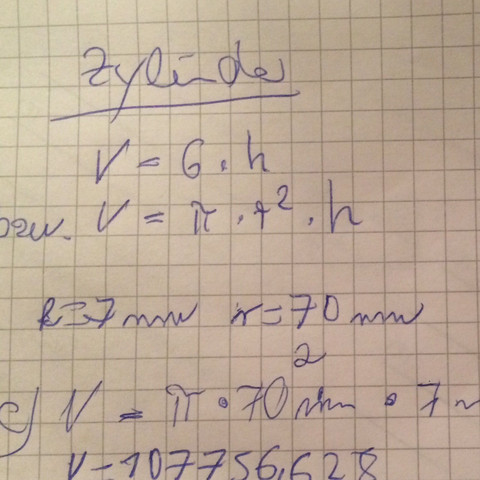 Zylinder
V = G · h
bzw. V = π · r² · h
h = 7 mm r = 70 mm
2
c) V = π · 70 mm · 7 m
V = 107756,628